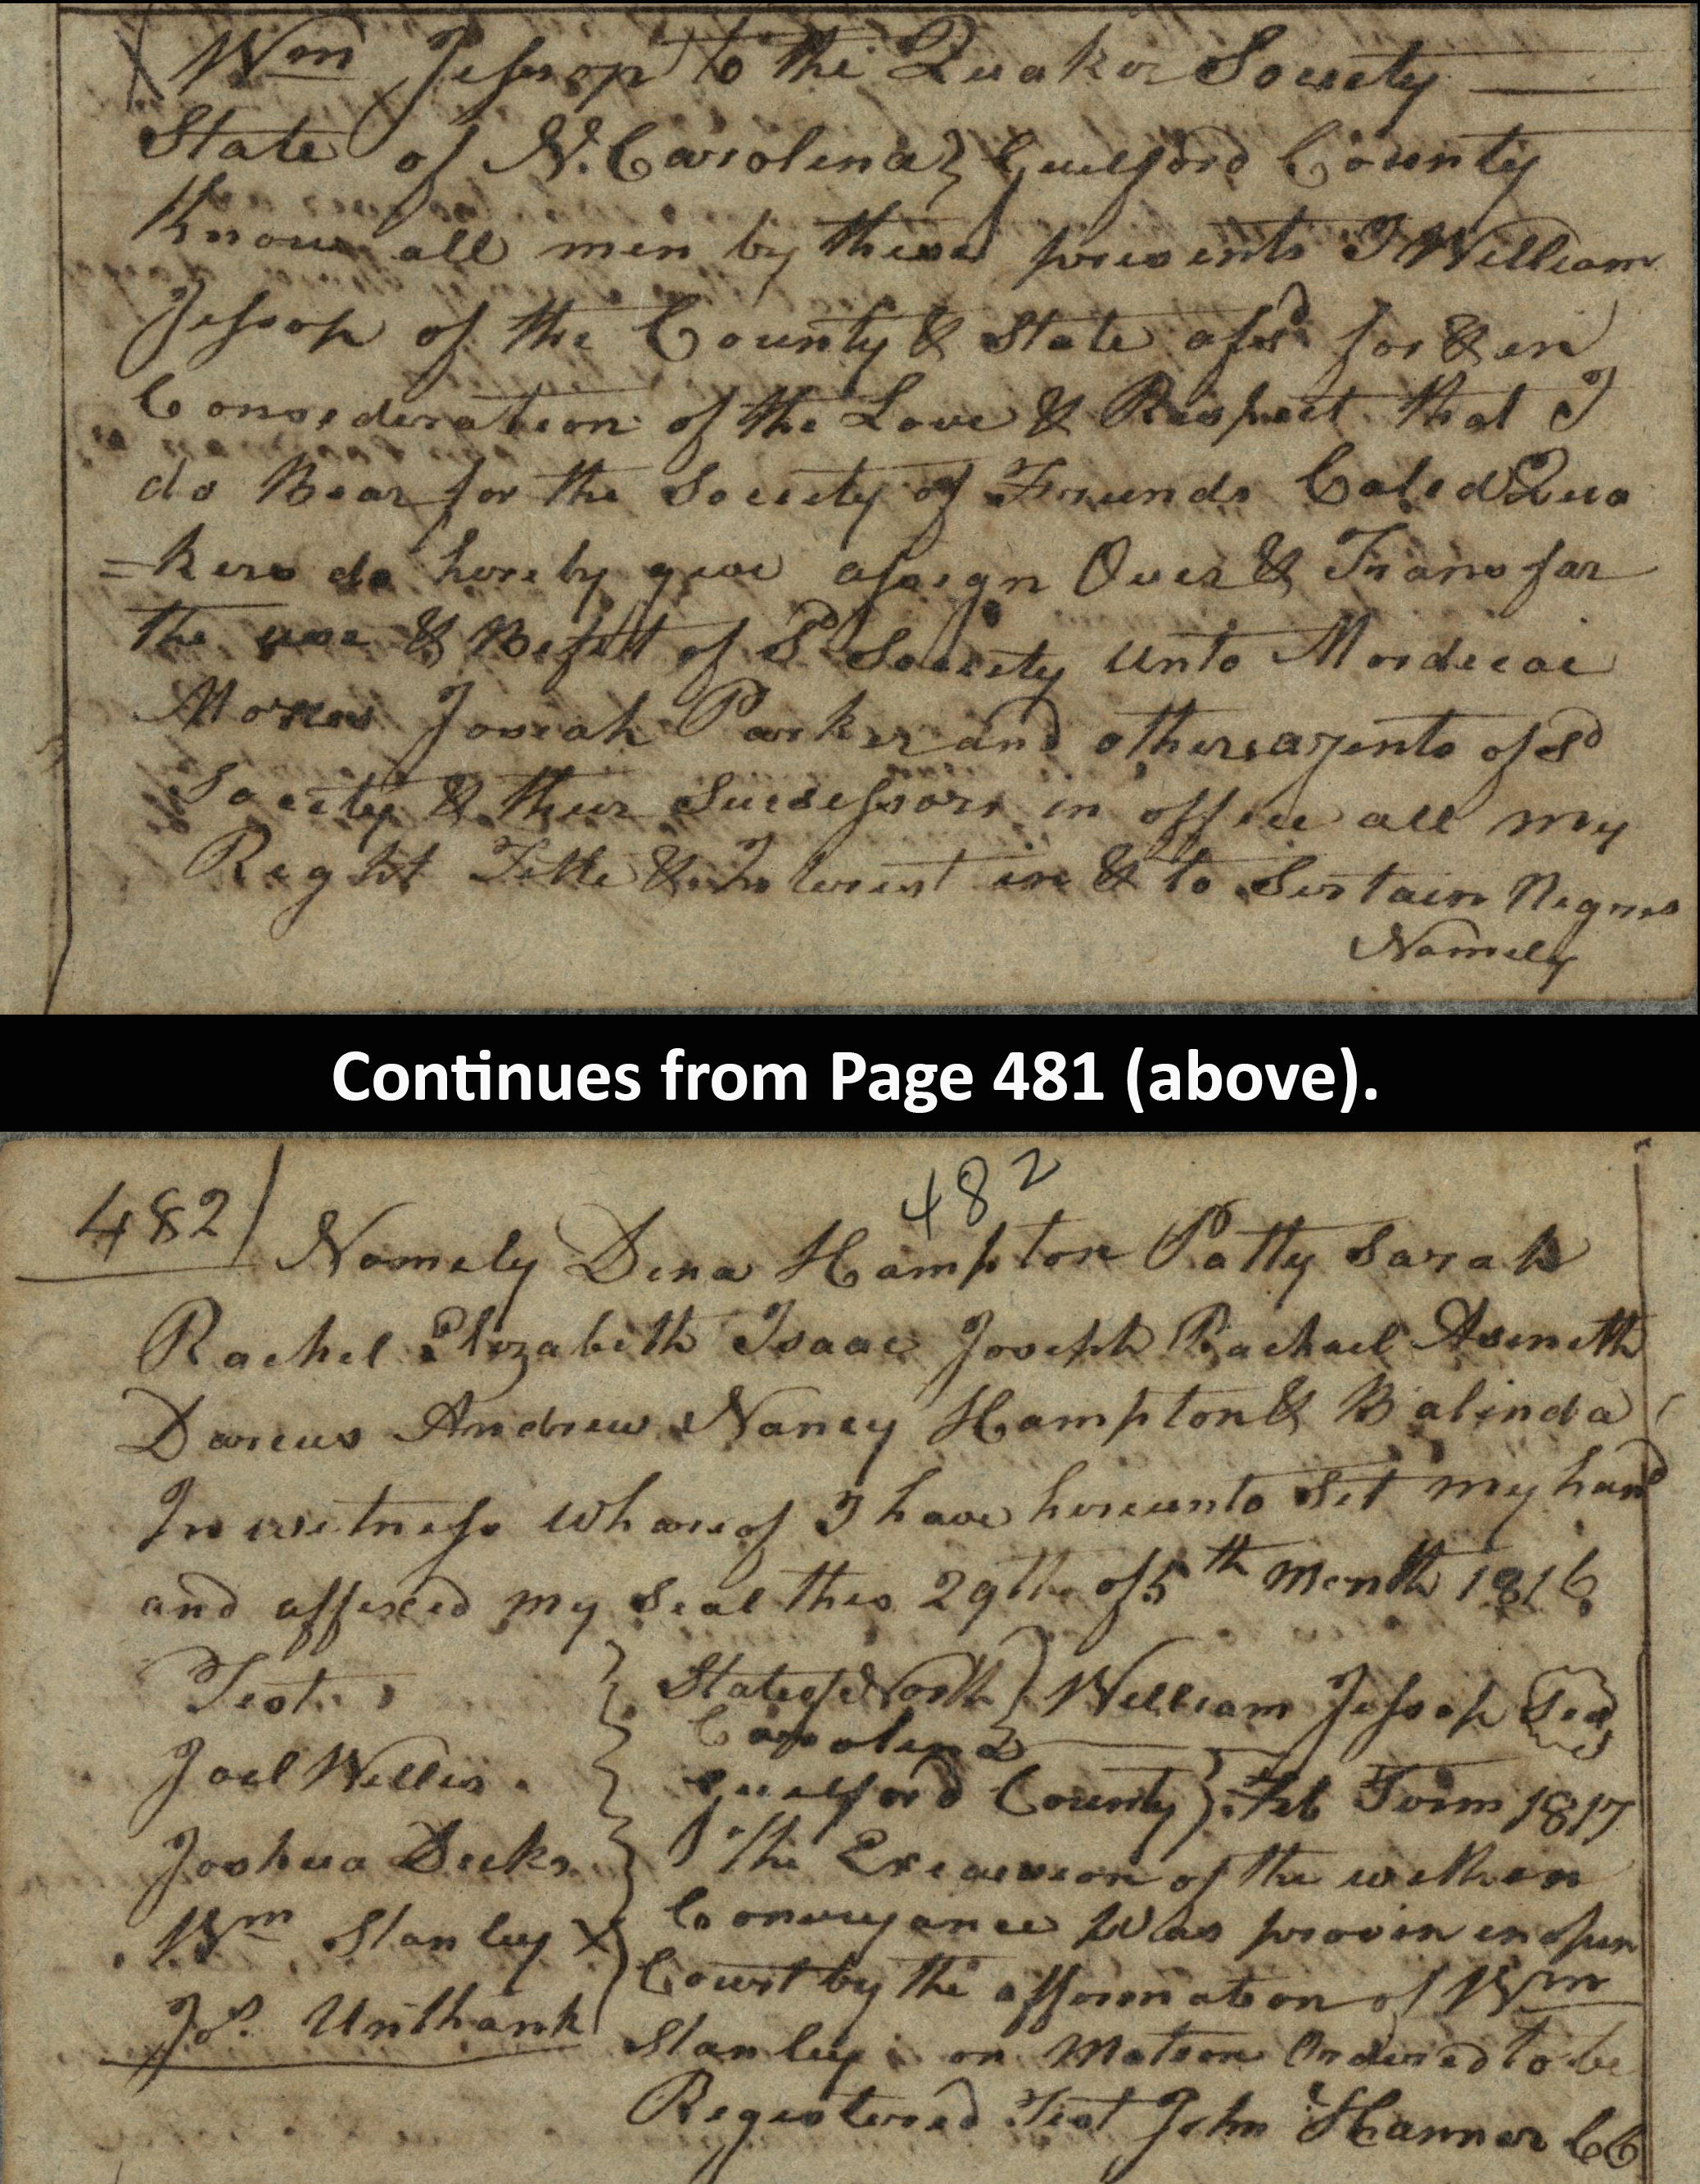 Wm Jessop to the Quaker Society
State of N. Carolina } Guilford County
Know all men by these presents I William
Jessop of the County & State afsd for & in
Consideration of the Love & Respect that I
do Bear for the Society of Friends Caled Qua
=kers do hereby give assign Over & Transfar
the use & Befit of Sd Society unto Mordecai
Josiah Parker and others agents of sd
Society & their Successors in office all my
Right Title & Interest in & to Sertain Negros
Namely
Continues from Page 481 (above).
482
482/
Namely Dina Hampton Patty Sarah
Rachel Elizabeth Isaac Joseph Rachael Aseneth
Darcus Andrew Nancy Hampton & Balinda
In witness whareof I have hereunto Set my hand
and affixed my Seal this 29th of 5th Month 1816
Test.
Joel Willis
Joshua Dicks
Wm Stanley X
Jos. Unthank
State of North } William Jessop Seal
Carolina
Guilford County } Feb Term 1817
The Execution of the within
Conveyance Was proven in open
Court by the affirmation of Wm
Stanley on Motion Ordered to be
Registered Test John Hanner CC